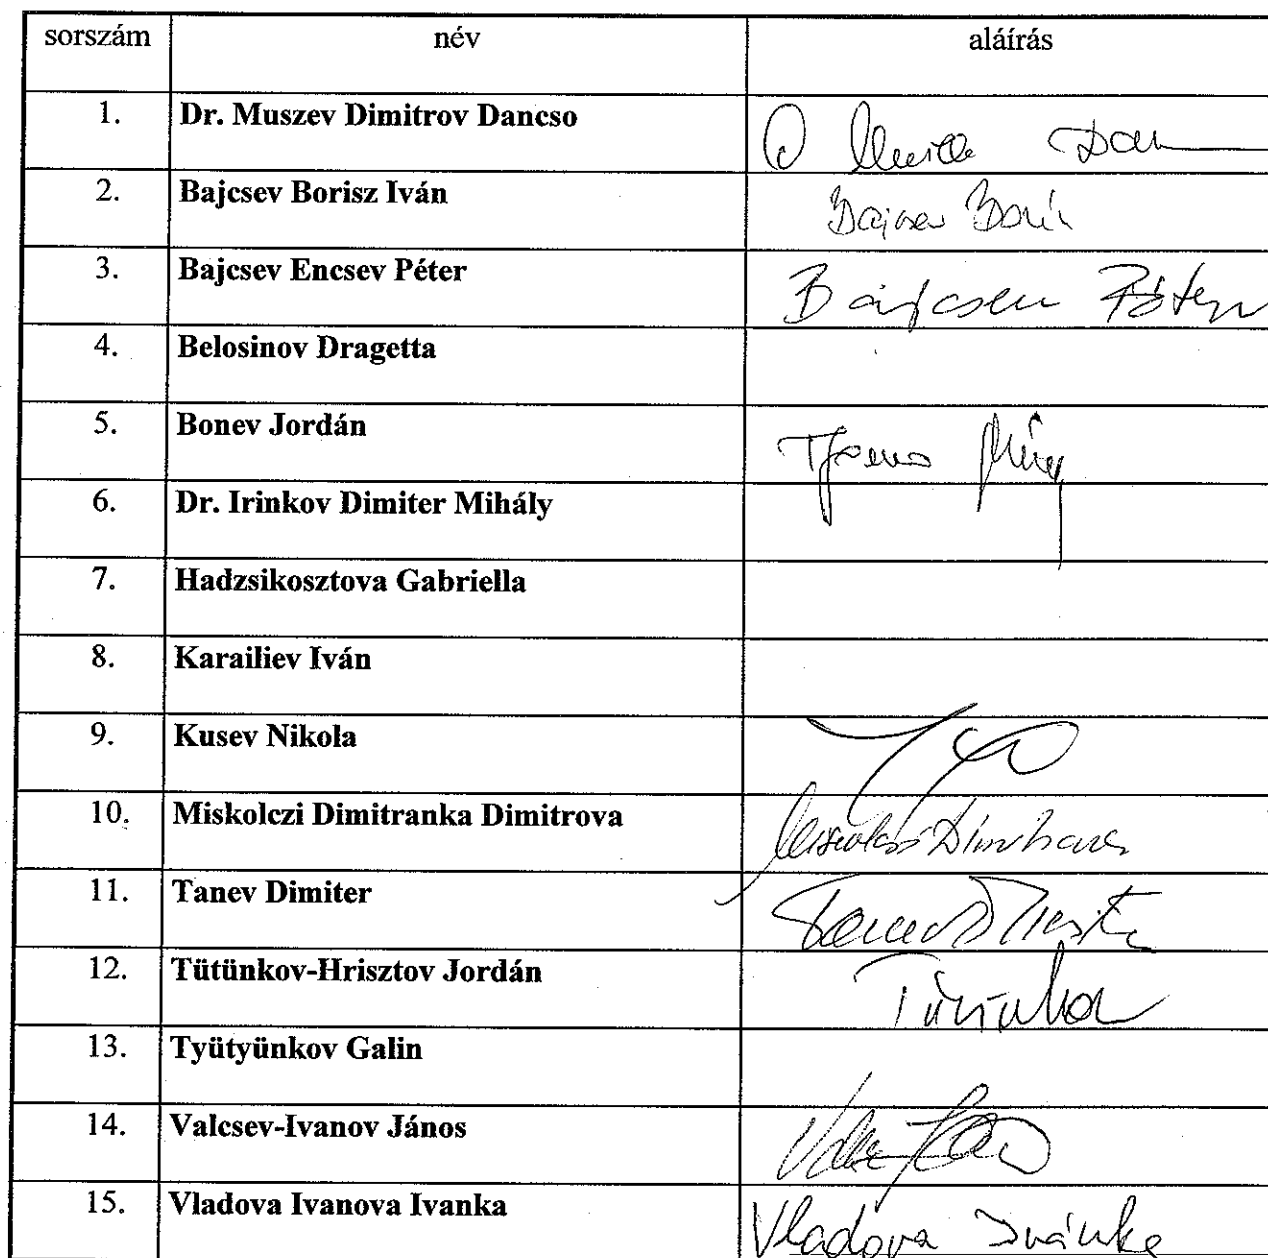 sorszám név aláírás
1. Dr. Muszev Dimitrov Dancso
2. Bajcsev Borisz Iván Bajcsev
3. Bajcsev Encsev Péter Bajcsev Péter
4. Belosinov Dragetta
5. Bonev Jordán
6. Dr. Irinkov Dimiter Mihály
7. Hadzsikosztova Gabriella
8. Karailiev Iván
9. Kusev Nikola
10. Miskolczi Dimitranka Dimitrova
11. Tanev Dimiter
12. Tütünkov-Hrisztov Jordán
13. Tyütyünkov Galin
14. Valcsev-Ivanov János
15. Vladova Ivanova Ivanka Vladova Ivánka